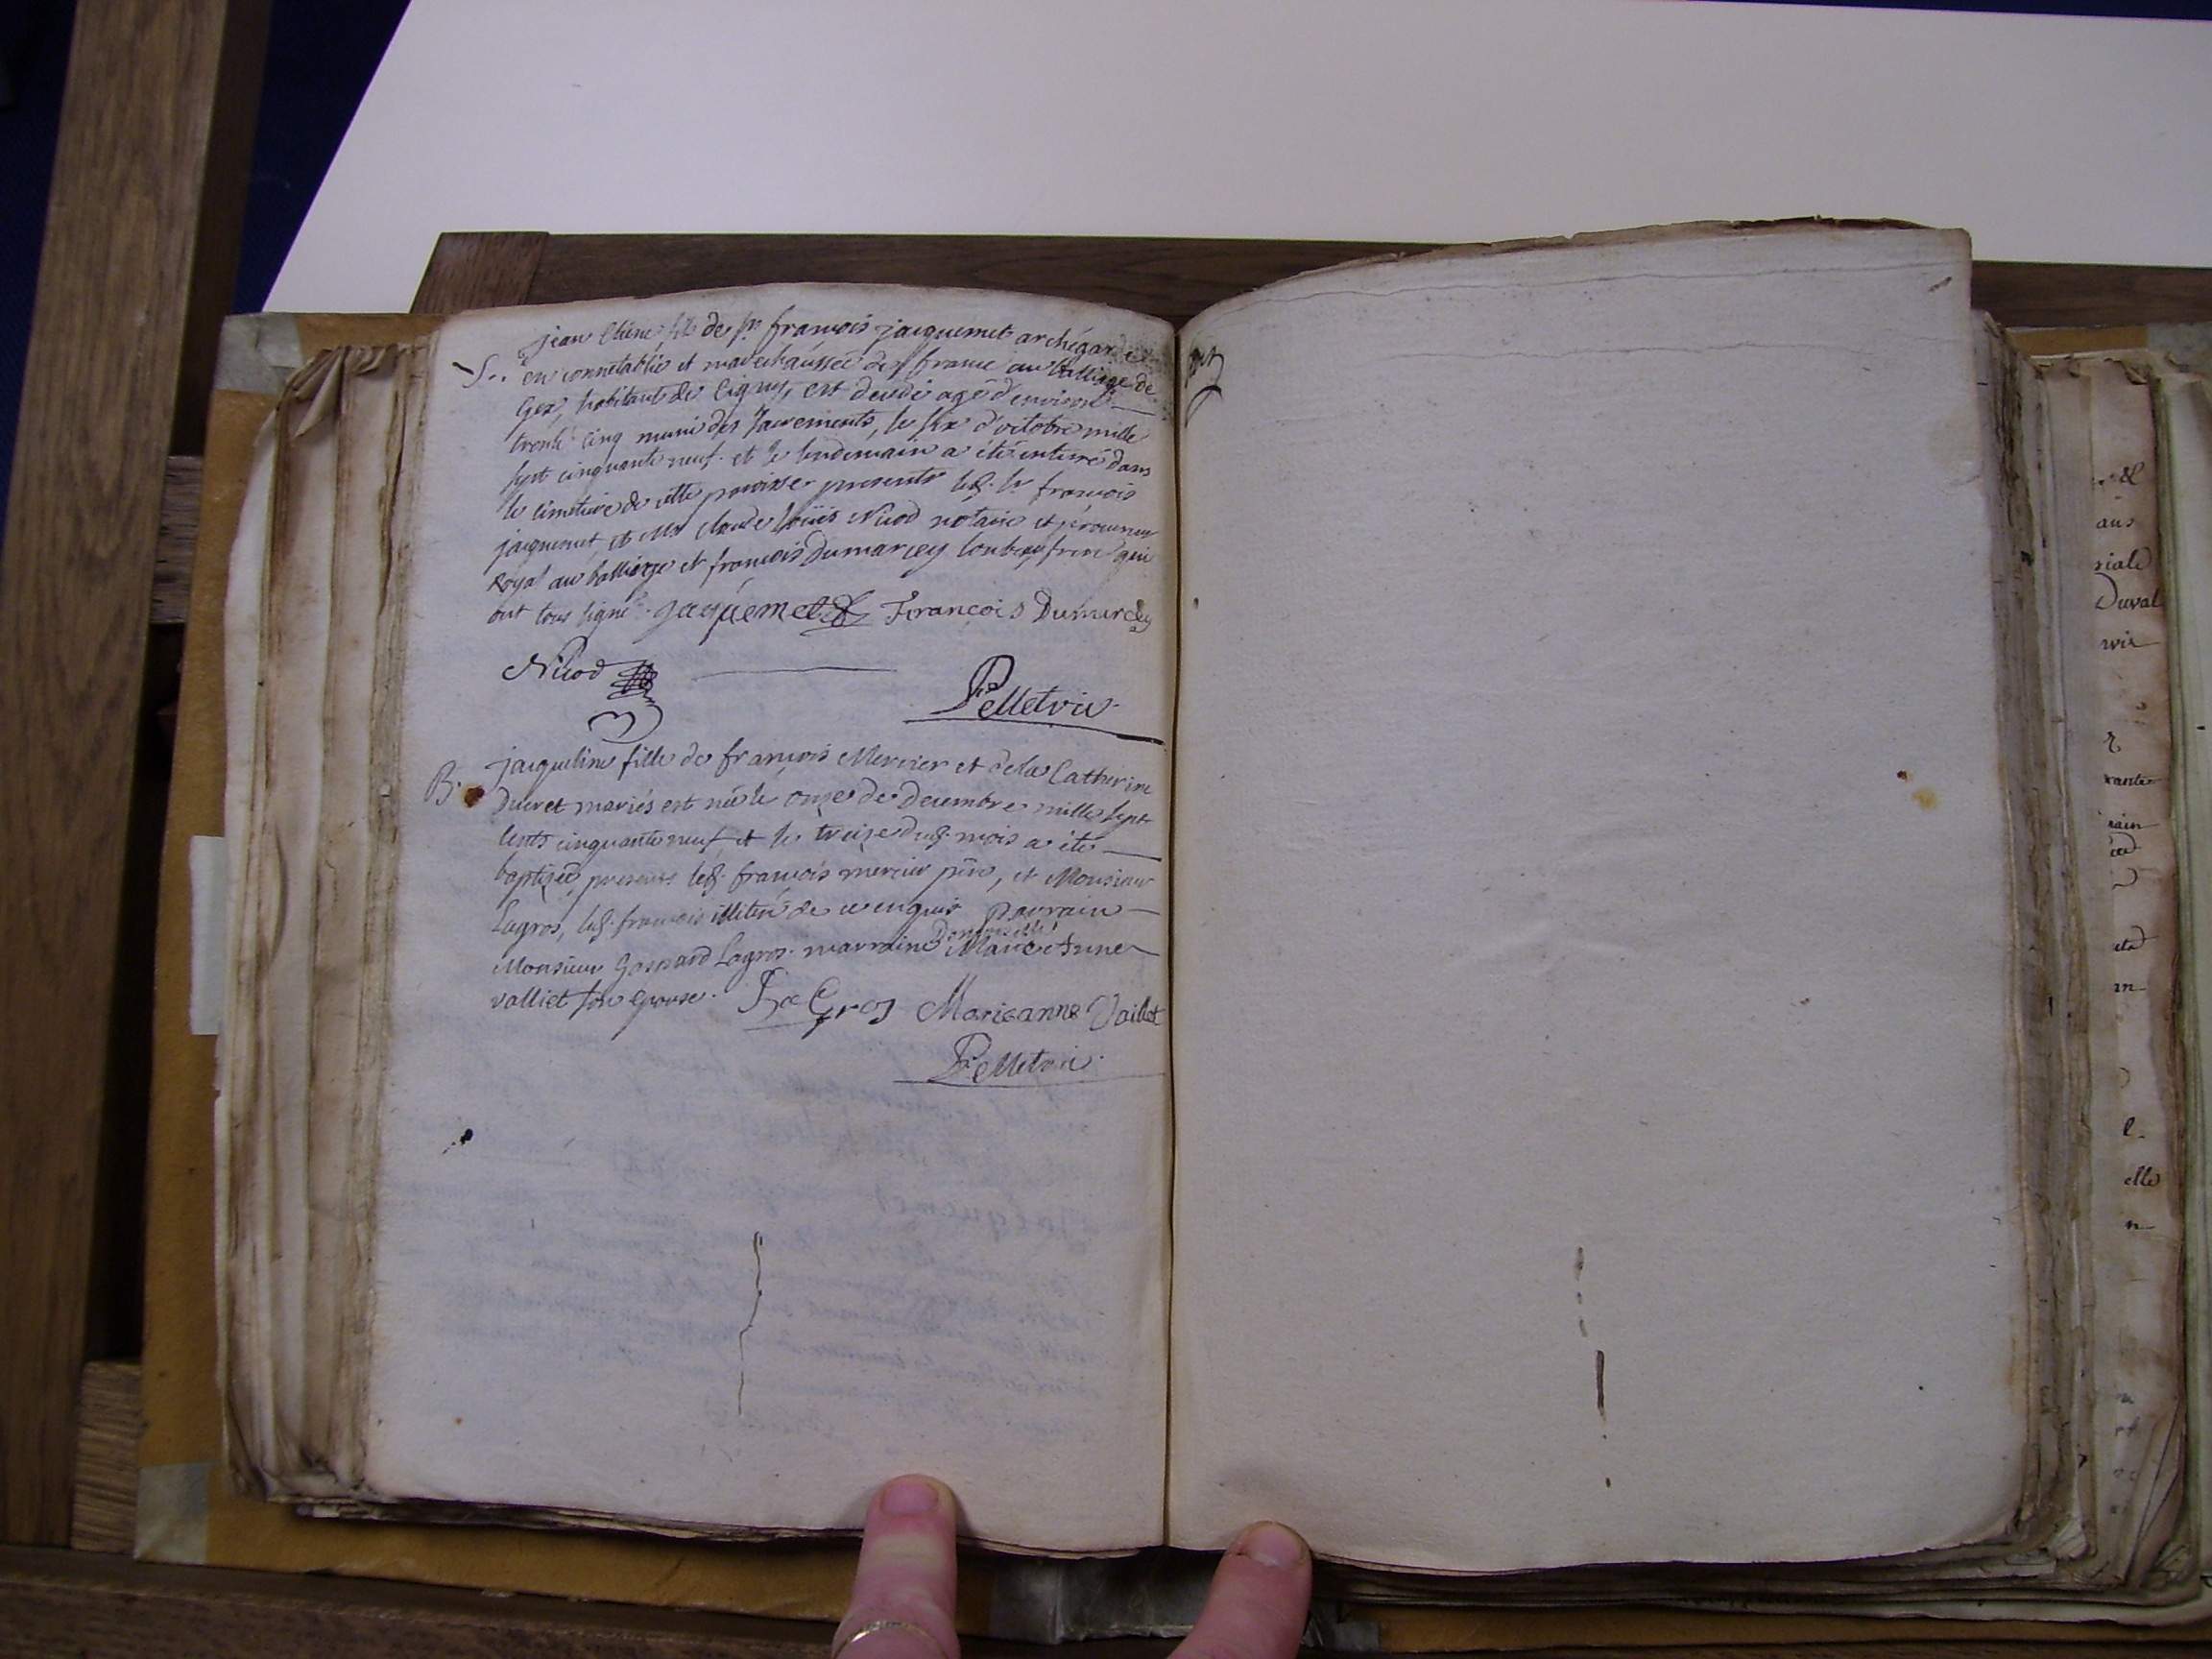 jean Etiene fils de sr. francois jacquemet archégarde
S.. en connétablie et marechaussée de france au balliage de
Gex, habitant de Cigny, est decedé agé d'environ
trente cinq muni des sacrements, le six d'octobre mille
sept cinquante neuf. et le lendemain a été enterré dans
le cimetiere de cette paroisse presents led. sr. francois
jacquemet, et Me Claude loüis Nicod notaire et procureur
Royal au balliage et francois Dumarcey son beau frere qui
ont tous signé. Jaquemet François Dumarcey
Nicod
Pelletrie
jacqueline fille de francois Mercier et de la Catherine
B. Ducret mariés est née le onze de decembre mille sept
cents cinquante neuf et le treize dud. mois a été
baptizée, presents led. francois mercier pere, et Monsieur
Lagros, led. francois illiteré de ce enquis Parrain
Monsieur Gaspard Lagros. marraine Demoiselle Marie Anne
valliet son epouse. La Gros Marieanne Vaillet
Pelletrie
ans
riale
Duval
rante
rain
elle